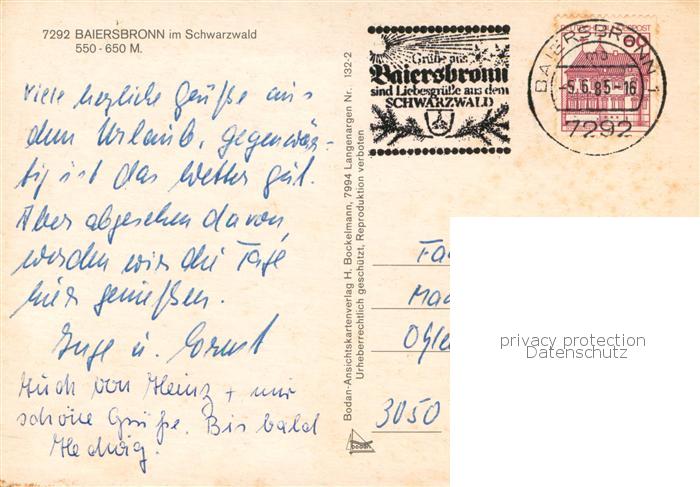 7292 BAIERSBRONN im Schwarzwald
550 - 650 M.
Viele herzliche Grüße aus
dem Urlaub, gegenwär-
tig ist das Wetter gut.
Aber abgesehen davon,
werden wir die Tage
hier genießen.
Inge u. Ernst
Auch von Heinz + mir
schöne Grüße. Bis bald
Hedwig.
Bodan-Ansichtskartenverlag H. Bockelmann, 7994 Langenargen Nr. 132-2
Urheberrechtlich geschützt, Reproduktion verboten
bodan
Grüße aus
Baiersbronn
sind Liebesgrüße aus dem
SCHWARZWALD
DEUTSCHE BUNDESPOST
60
BAIERSBRONN 1
-5.6.85-16
7292
Fa
Ma
3050
privacy protection
Datenschutz